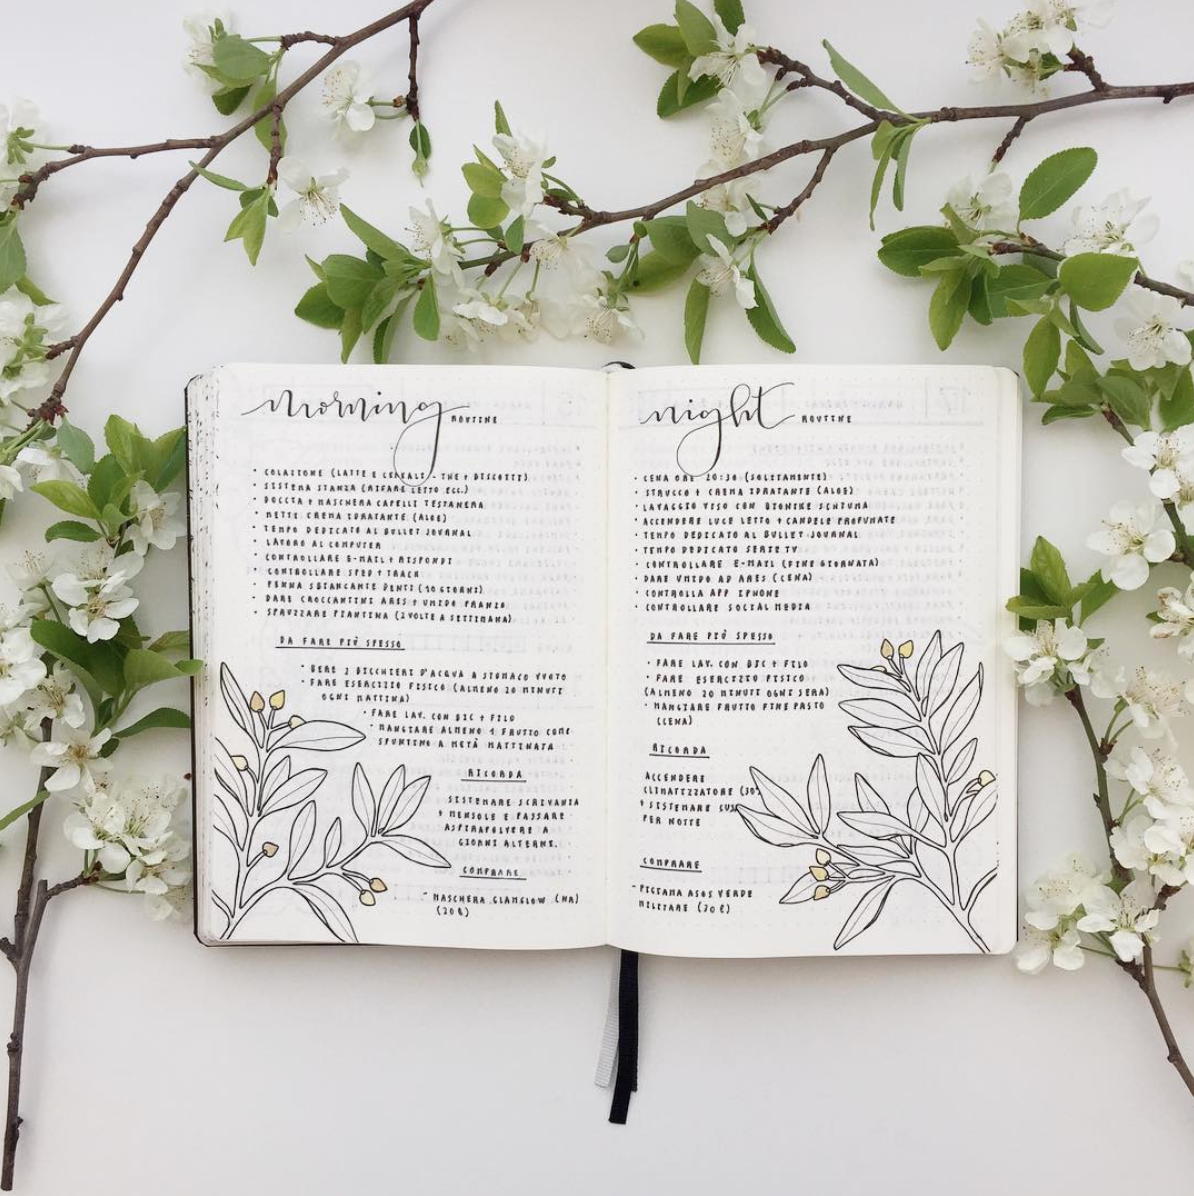 morning ROUTINE
• COLAZIONE (LATTE E CEREALI - THE + BISCOTTI)
• SISTEMA STANZA (RIFARE LETTO ECC.)
• DOCCIA + MASCHERA CAPELLI TESTANERA
• METTI CREMA IDRATANTE (ALOE)
• TEMPO DEDICATO AL BULLET JOURNAL
• LAVORO AL COMPUTER
• CONTROLLARE E-MAIL + RISPONDI
• CONTROLLARE SPED + TRACK
• PENNA SBIANCANTE DENTI (10 GIORNI)
• DARE CROCCANTINI ARES + UMIDO PRANZO
• SPRUZZARE PIANTINA (2 VOLTE A SETTIMANA)
DA FARE PIÙ SPESSO
• BERE 2 BICCHIERI D'ACQUA A STOMACO VUOTO
• FARE ESERCIZIO FISICO (ALMENO 20 MINUTI
OGNI MATTINA)
• FARE LAV. CON BIC + FILO
• MANGIARE ALMENO 1 FRUTTO COME
SPUNTINO A METÀ MATTINATA
RICORDA
SISTEMARE SCRIVANIA
+ MENSOLE E PASSARE
ASPIRAPOLVERE A
GIORNI ALTERNI.
COMPRARE
- MASCHERA GLAMGLOW (NA)
(20 €)
night ROUTINE
• CENA ORE 20:30 (SOLITAMENTE)
• STRUCCO + CREMA IDRATANTE (ALOE)
• LAVAGGIO VISO CON BIONIKE
• ACCENDERE LUCE LETTO + CANDELE PROFUMATE
• TEMPO DEDICATO AL BULLET JOURNAL
• TEMPO DEDICATO SERIE TV
• CONTROLLARE E-MAIL (FINE GIORNATA)
• DARE UMIDO AD ARES (CENA)
• CONTROLLA APP IPHONE
• CONTROLLARE SOCIAL MEDIA
DA FARE PIÙ SPESSO
• FARE LAV. CON BIC + FILO
• FARE ESERCIZIO FISICO
(ALMENO 20 MINUTI OGNI SERA)
• MANGIARE FRUTTO FINE PASTO
(CENA)
RICORDA
ACCENDERE
CLIMATIZZATORE (30
+ SISTEMARE
PER NOTTE
COMPRARE
- PIGIAMA ASOS VERDE
MILITARE (20 €)